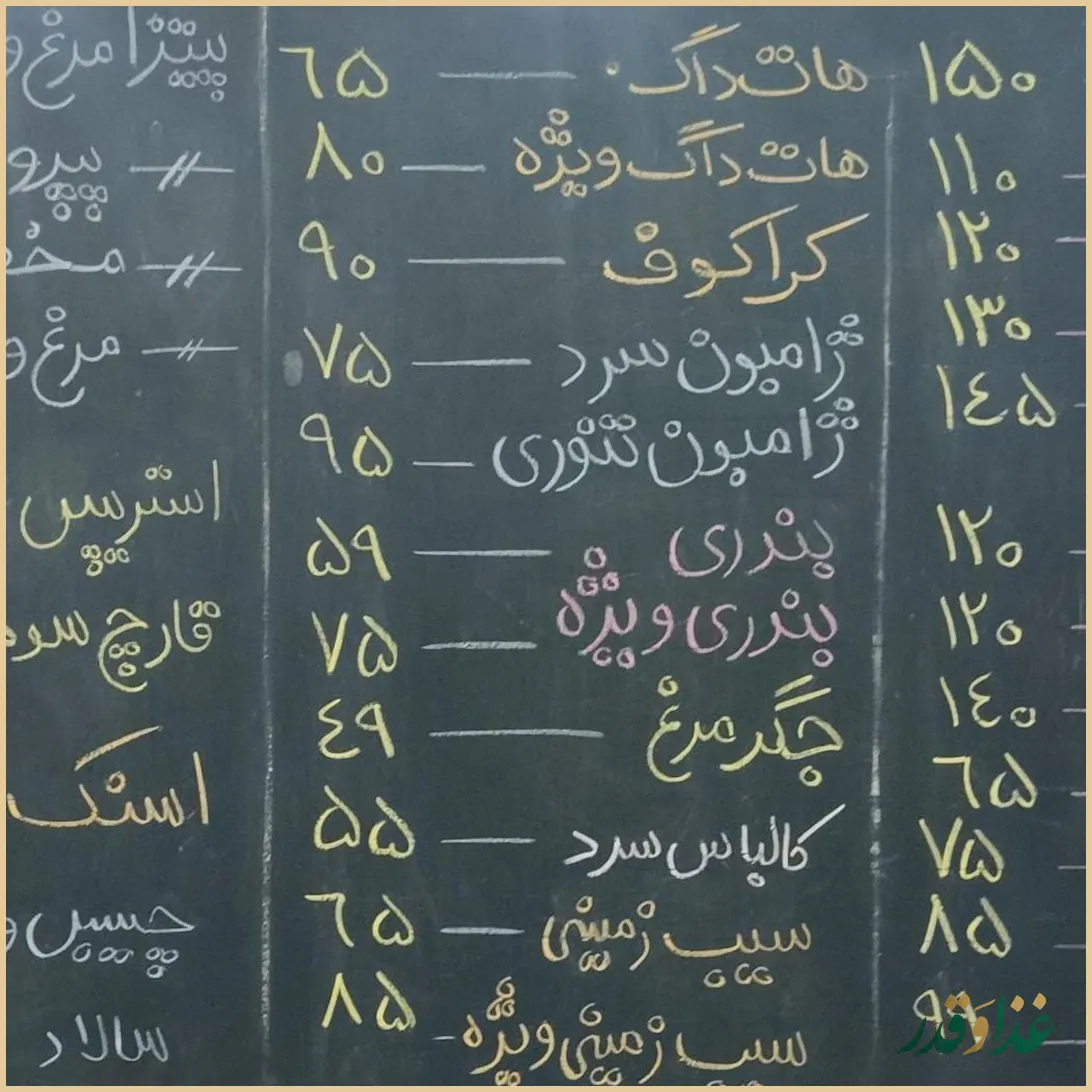 ۱۵۰
۱۱۰
۱۲۰
۱۳۰
۱۴۵
۱۲۰
۱۲۰
۱۴۰
۶۵
۷۵
۸۵
هات داگ — ۶۵
هات داگ ویژه — ۸۰
کراکوف — ۹۰
ژامبون سرد — ۷۵
ژامبون تنوری — ۹۵
بندری — ۵۹
بندری ویژه — ۷۵
جگر مرغ — ۴۹
کالباس سرد — ۵۵
سیب زمینی — ۶۵
سیب زمینی ویژه - ۸۵
پیتزا مرغ و
مرغ و
استرپس
قارچ
استک
چیپس و
سالاد
غذا و قدر